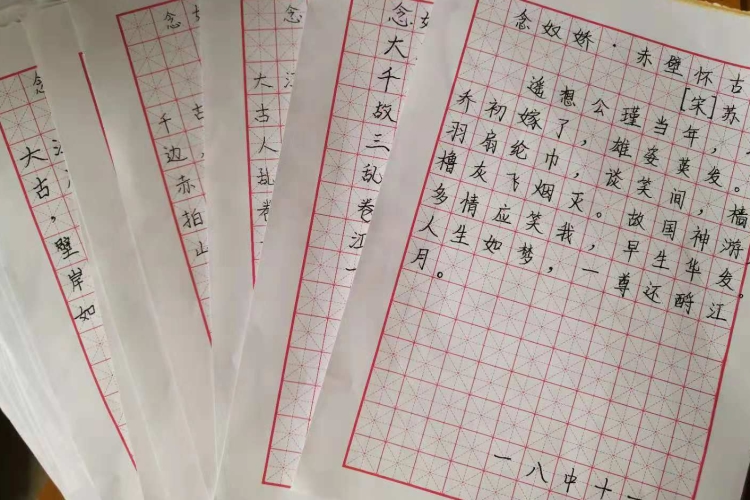 念
大
古，
壁
岸
如
念
千古
边
赤
拍
山
念
大江
古
人
乱
卷
念
大
千
故
三
乱
卷
江
一
念奴娇·赤壁怀古
[宋]苏
遥想公瑾当年，
乔初嫁了，雄姿英发。
羽扇纶巾，谈笑间，樯
橹灰飞烟灭。故国神游
多情应笑我，早生华发。
人生如梦，一尊还酹江
月。
一八中十一